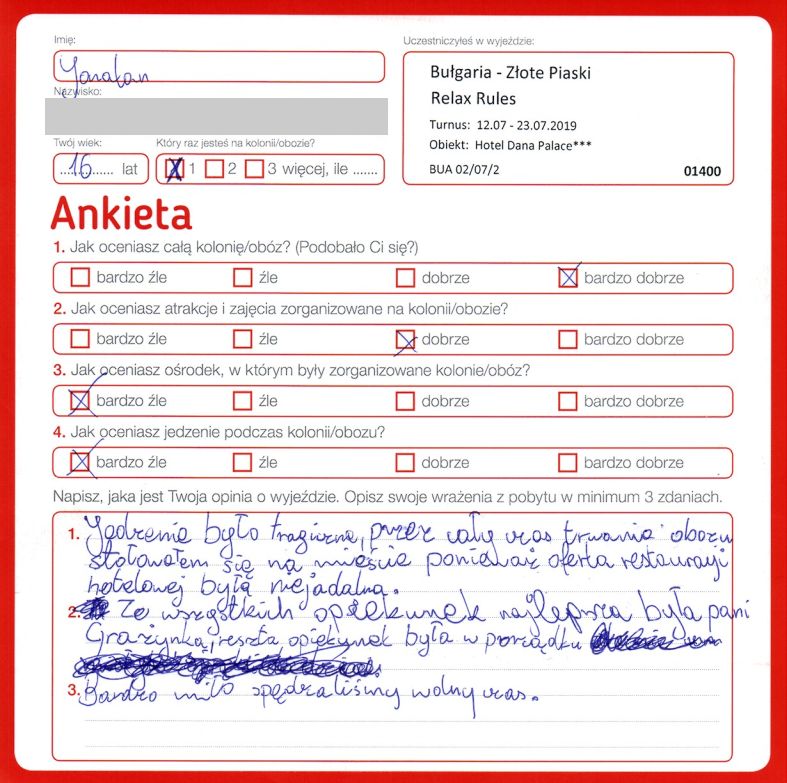 Imię:
Uczestniczyłeś w wyjeździe:
Jonatan
Bułgaria - Złote Piaski
Relax Rules
Nazwisko:
Turnus: 12.07 - 23.07.2019
Obiekt: Hotel Dana Palace***
BUA 02/07/2 01400
Twój wiek:
Który raz jesteś na kolonii/obozie?
16 lat
X 1 2 3 więcej, ile .......
Ankieta
1. Jak oceniasz całą kolonię/obóz? (Podobało Ci się?)
bardzo źle źle dobrze X bardzo dobrze
2. Jak oceniasz atrakcje i zajęcia zorganizowane na kolonii/obozie?
bardzo źle źle X dobrze bardzo dobrze
3. Jak oceniasz ośrodek, w którym były zorganizowane kolonie/obóz?
X bardzo źle źle dobrze bardzo dobrze
4. Jak oceniasz jedzenie podczas kolonii/obozu?
X bardzo źle źle dobrze bardzo dobrze
Napisz, jaka jest Twoja opinia o wyjeździe. Opisz swoje wrażenia z pobytu w minimum 3 zdaniach.
1. Jedzenie było tragiczne, przez cały czas trwania obozu
stołowałem się na mieście ponieważ oferta restauracji
hotelowej była niejadalna.
2. Ze wszystkich opiekunek najlepsza była pani
Grażynka, reszta opiekunek była w porządku
3. Bardzo miło spędzaliśmy wolny czas.